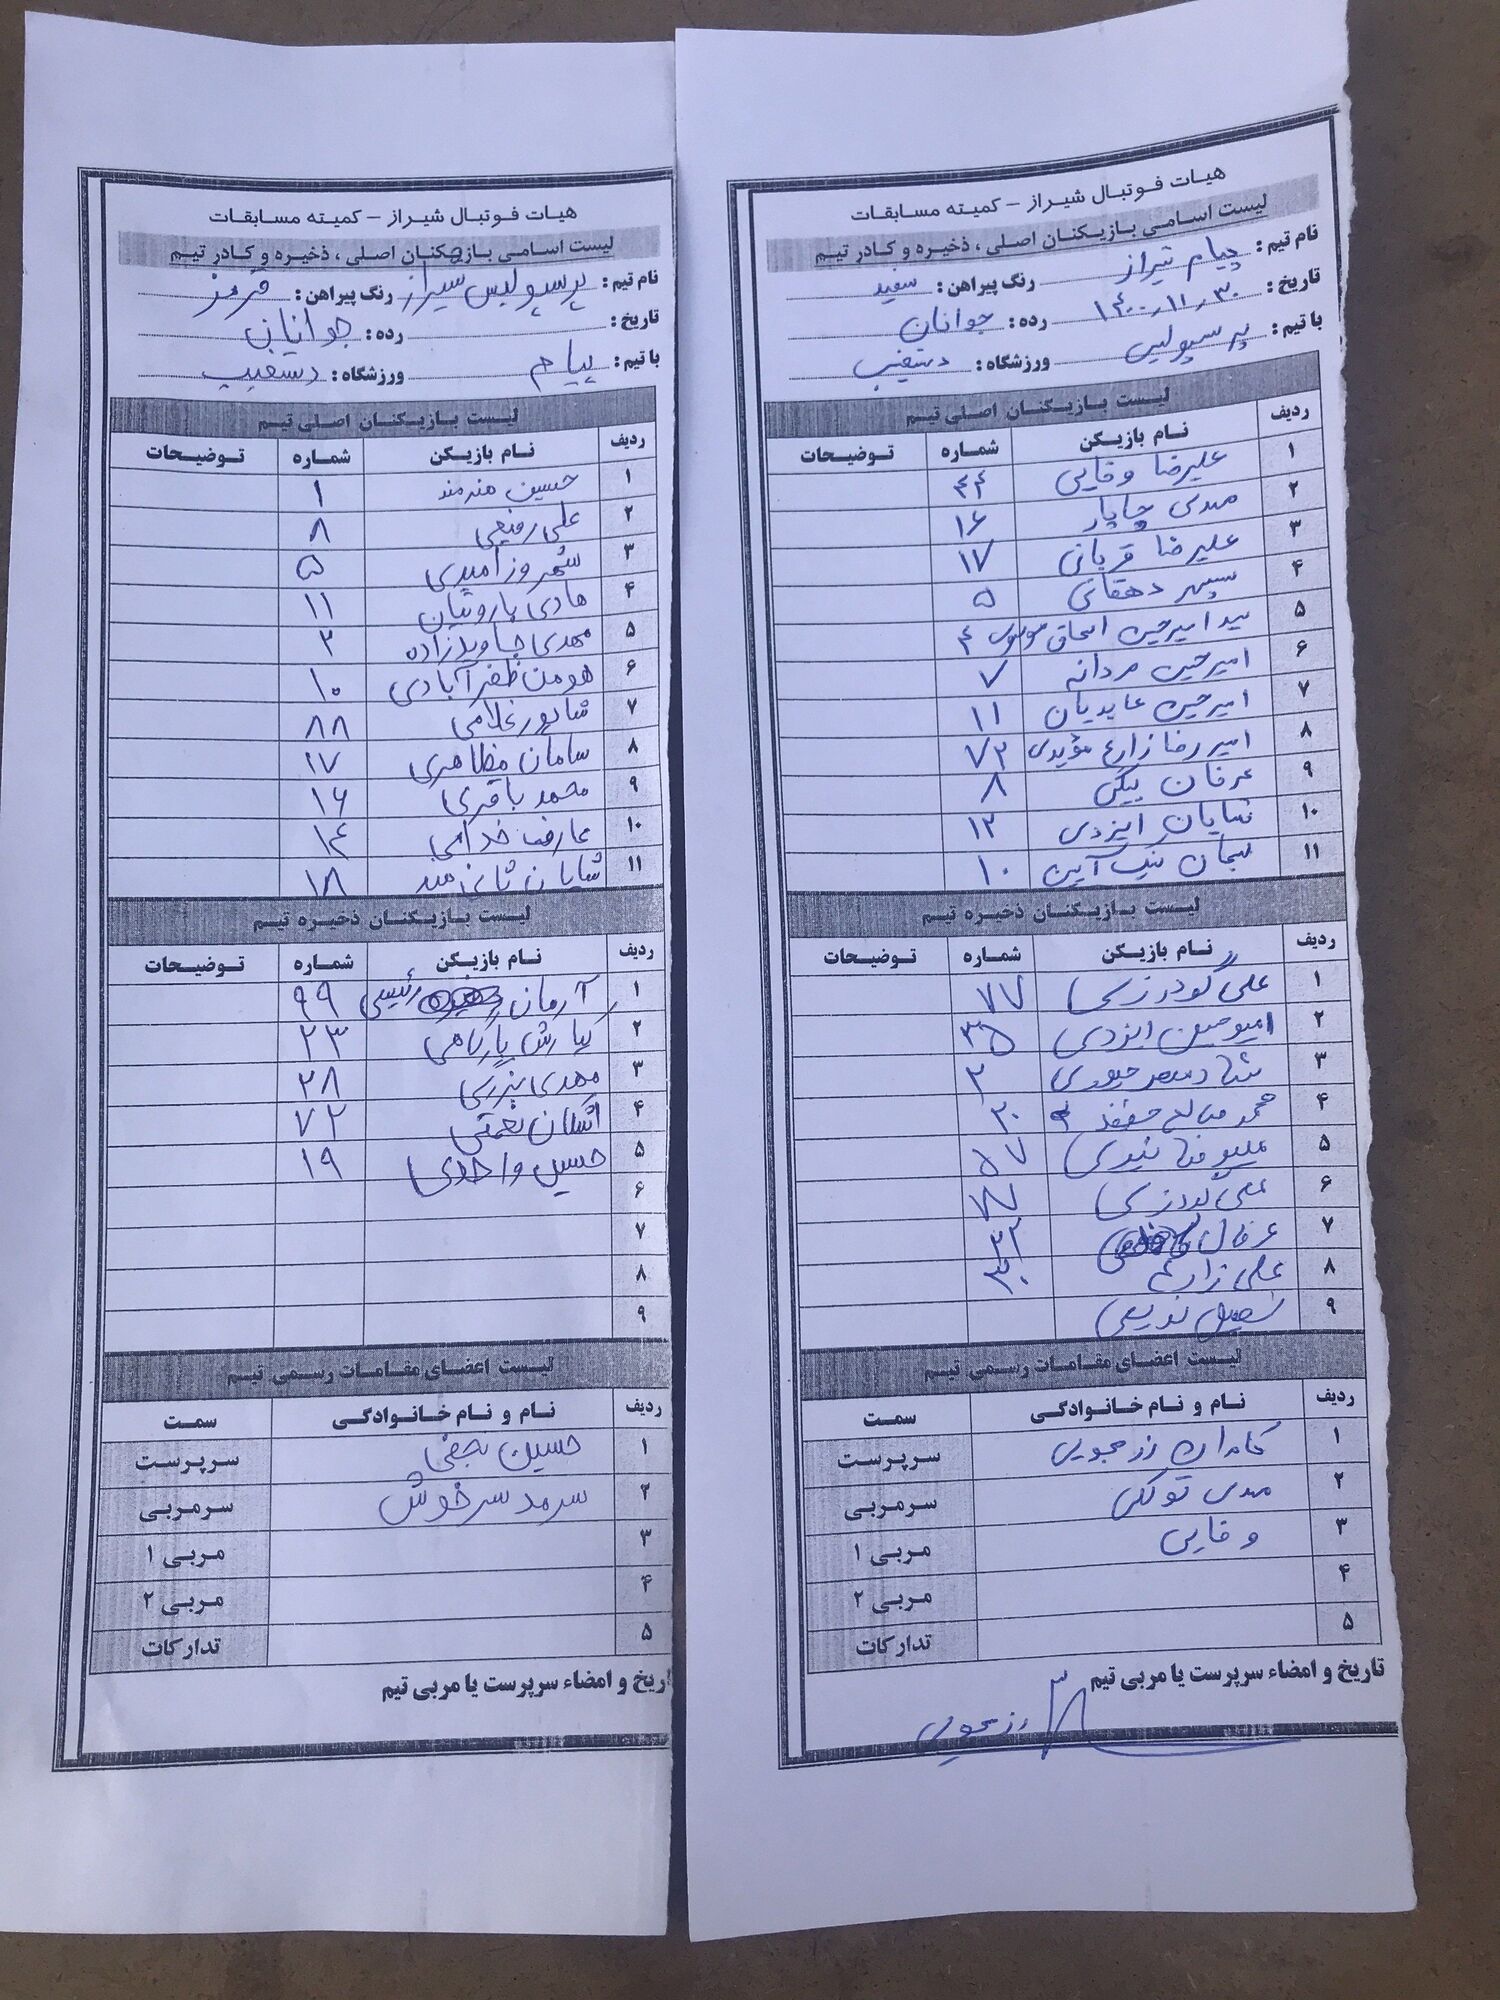 هیات فوتبال شیراز - کمیته مسابقات
لیست اسامی بازیکنان اصلی ، ذخیره و کادر تیم
نام تیم : پیام شیراز رنگ پیراهن : سفید
تاریخ : ۱۴۰۰،۱۱،۳۰ رده : جوانان
با تیم : پرسپولیس ورزشگاه : دستغیب
لیست بازیکنان اصلی تیم
ردیف نام بازیکن شماره توضیحات
۱ علیرضا وفایی ۴۴
۲ مهدی چاپار ۱۶
۳ علیرضا قربانی ۱۷
۴ سپهر دهقانی ۵
۵ سید امیرحسین اسحاق موسوی ۴
۶ امیرحسین مردانه ۷
۷ امیرحسین عابدیان ۱۱
۸ امیررضا زارع مؤیدی ۷۲
۹ عرفان بیگی ۸
۱۰ شایان ایزدی ۱۲
۱۱ سبحان نیک آیین ۱۰
لیست بازیکنان ذخیره تیم
ردیف نام بازیکن شماره توضیحات
۱ علی گودرزی ۷۷
۲ امیرحسین ایزدی ۳۵
۳ ۲
۴ محمد صالح ۲۰
۵ علیرضا ۵۷
۶ علی گودرزی
۷ عرفان ۳۲
۸ علی زارع ۳۰
۹
لیست اعضای مقامات رسمی تیم
ردیف نام و نام خانوادگی سمت
۱ کامران رزمجویی سرپرست
۲ مهدی توکلی سرمربی
۳ وفایی مربی ۱
۴ مربی ۲
۵ تدارکات
تاریخ و امضاء سرپرست یا مربی تیم
رزمجویی
هیات فوتبال شیراز - کمیته مسابقات
لیست اسامی بازیکنان اصلی ، ذخیره و کادر تیم
نام تیم : پرسپولیس شیراز رنگ پیراهن : قرمز
تاریخ : رده : جوانان
با تیم : پیام ورزشگاه : دستغیب
لیست بازیکنان اصلی تیم
ردیف نام بازیکن شماره توضیحات
۱ حسین هنرمند ۱
۲ علی رفیعی ۸
۳ شهروز امیری ۵
۴ هادی باروتیان ۱۱
۵ مهدی جاویدزاده ۲
۶ هومن ظفرآبادی ۱۰
۷ شاپور غلامی ۸۸
۸ سامان مظاهری ۱۷
۹ محمد باقری ۱۶
۱۰ عارف خدامی ۱۴
۱۱ شایان ۱۸
لیست بازیکنان ذخیره تیم
ردیف نام بازیکن شماره توضیحات
۱ آرمان رئیسی ۹۹
۲ کیارش ۲۳
۳ مهدی ۲۸
۴ اشکان نعمتی ۷۲
۵ حسین واحدی ۱۹
۶
۷
۸
۹
لیست اعضای مقامات رسمی تیم
ردیف نام و نام خانوادگی سمت
۱ حسین نجفی سرپرست
۲ سرمد سرخوش سرمربی
۳ مربی ۱
۴ مربی ۲
۵ تدارکات
تاریخ و امضاء سرپرست یا مربی تیم